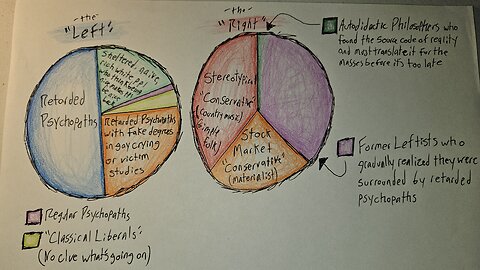 the
"Left"
Sheltered, naive
rich white ppl
who think being
Retarded
Psychopaths
Retarded Psychopaths
with fake degrees
in gay crying
or victim
studies
Regular Psychopaths
"Classical Liberals"
(No clue what's going on)
the
"Right"
Stereotypical
"Conservative"
(country music)
simple
folk)
Stock
Market
"Conservative"
(materialist)
Autodidactic Philosophers who
found the source code of reality
and must translate it for the
masses before it's too late
Former Leftists who
gradually realized they were
surrounded by retarded
psychopaths